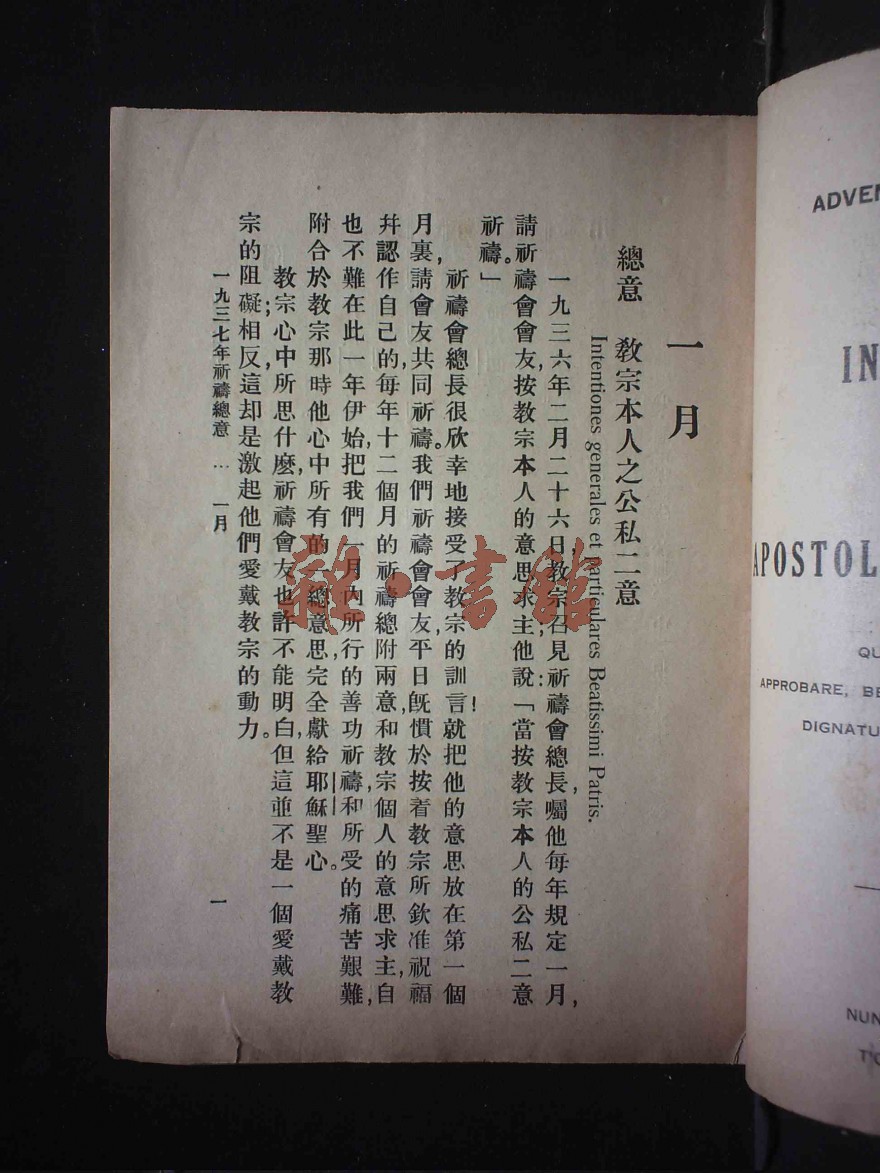 一月
總意 教宗本人之公私二意
Intentiones generales et particulares Beatissimi Patris.
一九三六年二月二十六日,教宗召見祈禱會總長,囑他每年規定一月,
請祈禱會會友,按教宗本人的意思求主;他說:「當按教宗本人的公私二意
祈禱。」
祈禱會總長很欣幸地接受了教宗的訓言!就把他的意思放在第一個
月裏,請會友共同祈禱。我們祈禱會會友,平日旣慣於按着教宗所欽准祝福
幷認作自己的,每年十二個月的祈禱總附兩意,和教宗個人的意思求主,自
也不難在此一年伊始,把我們一月內所行的善功祈禱,和所受的痛苦艱難,
附合於教宗那時他心中所有的一總意思,完全獻給耶穌聖心。
教宗心中所思什麽,祈禱會友也許不能明白,但這並不是一個愛戴教
宗的阻礙;相反,這却是激起他們愛戴教宗的動力。
一九三七年祈禱總意 … 一月
一
雜·書館
ADVEN
IN
APOSTOL
QU
APPROBARE, BE
DIGNATU
NUN